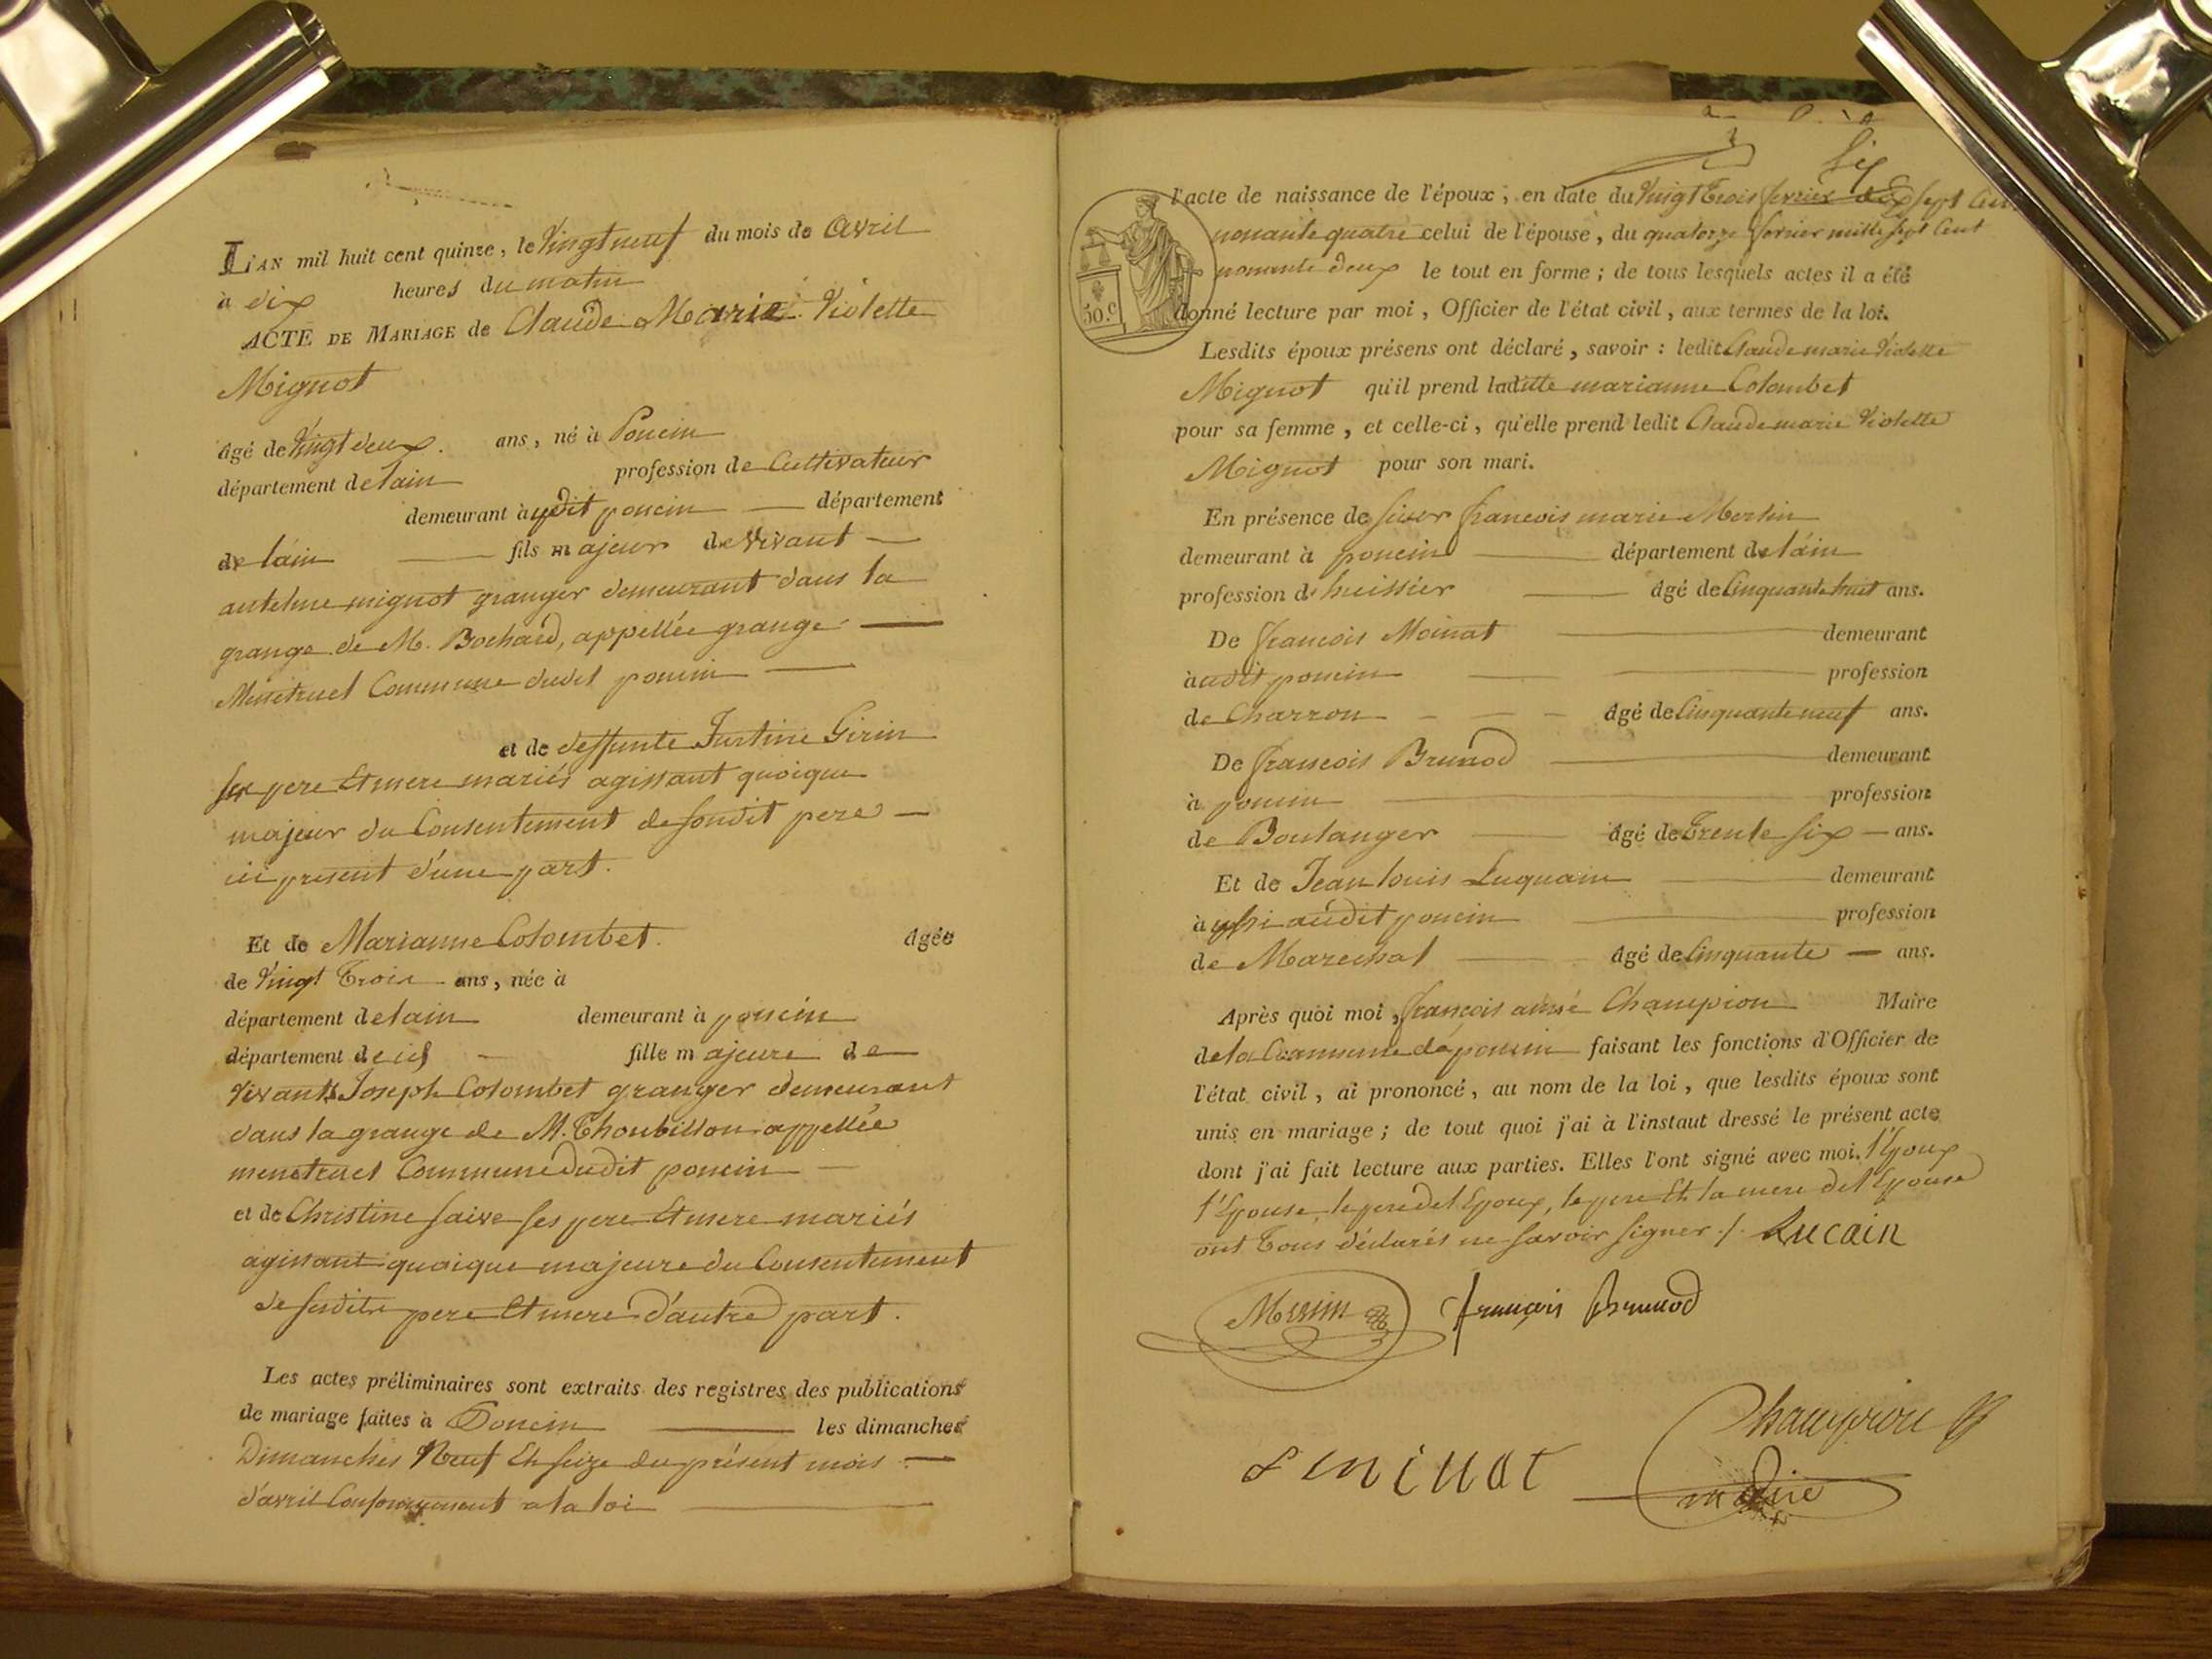 L'AN mil huit cent quinze, le Vingt neuf du mois de Avril
à dix heures du matin
ACTE DE MARIAGE de Claude Marie Violette
Mignot
âgé de Vingt deux. ans, né à Poncin
département de lain profession de Cultivateur
demeurant àudit poncin département
de lain fils majeur de vivant
antelme mignot granger demeurant dans la
grange de M. Bochard, appellée grange
Menetruel Commune dudit poncin
et de deffunte Justine Girin
ses pere Et mere mariés agissant quoique
majeur du Consentement de sondit pere
ici present d'une part.
Et de Marianne Colombet. âgée
de Vingt Trois ans, née à
département de lain demeurant à poncin
département de id fille majeure de
vivants Joseph Colombet granger demeurant
dans la grange de M. Thoubillon appellée
menetruel Commune dudit poncin
et de Christine saive ses pere Et mere mariés
agissant quoique majeure du Consentement
de sesdits pere Et mere d'autre part.
Les actes préliminaires sont extraits des registres des publications
de mariage faites à Poncin les dimanches
Dimanches Neuf Et seize du présent mois
d'avril Conformement a la loi
six
l'acte de naissance de l'époux, en date du Vingt Trois fevrier dix sept Cent
nonante quatre celui de l'épouse, du quatorze fevrier mille sept Cent
nonante deux le tout en forme; de tous lesquels actes il a été
50.c donné lecture par moi, Officier de l'état civil, aux termes de la loi.
Lesdits époux présens ont déclaré, savoir: ledit Claude marie Violette
Mignot qu'il prend laditte marianne Colombet
pour sa femme, et celle-ci, qu'elle prend ledit Claude marie Violette
Mignot pour son mari.
En présence de sieur francois marie Merlin
demeurant à poncin département de láin
profession d' huissier âgé de Cinquante huit ans.
De francois Moinat demeurant
àudit poncin profession
de Charron âgé de Cinquante neuf ans.
De francois Brunod demeurant
à poncin profession
de Boulanger âgé de Trente six ans.
Et de Jean louis Luquain demeurant
àussi audit poncin profession
de Marechal âgé de Cinquante ans.
Après quoi moi, françois aimé Champion Maire
de la Commune de poncin faisant les fonctions d'Officier de
l'état civil, ai prononcé, au nom de la loi, que lesdits époux sont
unis en mariage; de tout quoi j'ai à l'instant dressé le présent acte
dont j'ai fait lecture aux parties. Elles l'ont signé avec moi. l'Epoux
l'Epouse, le pere del Epoux, le pere Et la mere del Epouse
ont Tous déclarés ne savoir signer ./. Lucain
Merlin françois Brunod
Champion
f moinat maire